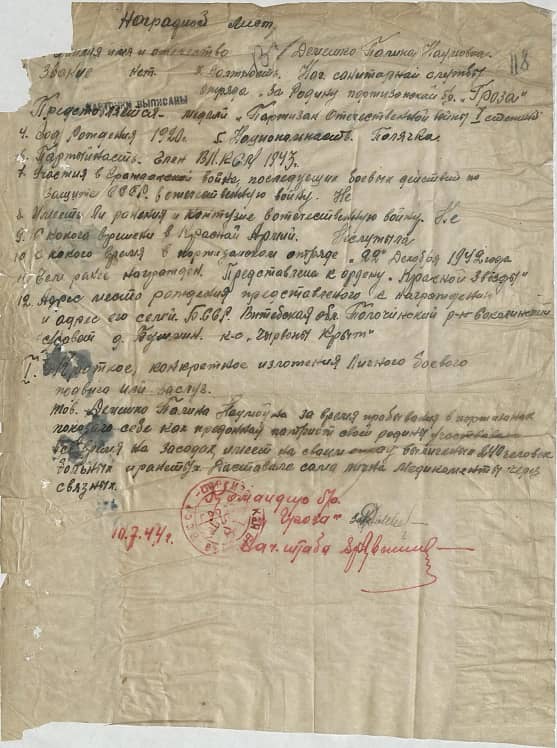 Наградной лист
118
имя и отечество Демешко Галина Наумовна.
Звание нет. должность. Нач. санитарной службы
отряда "За Родину партизанской бр. "Гроза"
КАРТОЧКИ ВЫПИСАНЫ
медали "Партизан Отечественной войны I степени
4. Год Рождения 1920. 5. Национальность. Полячка.
6. Партийность. Член ВЛКСМ 1943г.
7. Участия в Гражданской войне, последующих боевых действий по
защите СССР в отечественную войну. Не
8. Имеет ли ранения и контузие в отечественную войну. Не
9. С какого времени в Красной Армии. Не служила
10. С какого время в партизанском отряде "22" Декабря 1942 года
11. Чем ранее награжден. Представлена к ордену "Красной Звезды"
12. Адрес место рождения представленого к награждению
и адрес его семьи. БССР. Витебская обл. Толочинский р-н
с/совет д. к-о "Чырвоны
I. Краткое, конкретное изложения личного боевого
подвига или заслуг.
Тов. Демешко Галина Наумовна за время пребывания в партизанах
показала себе как преданный патриот свой родины
время на засадах, имеет на своим вылечения 240 человек
больных и раненых. Доставала сама лично медикаменты через
связных.
Командир бр.
"Гроза"
10.7.44г. Нач. штаба бр.